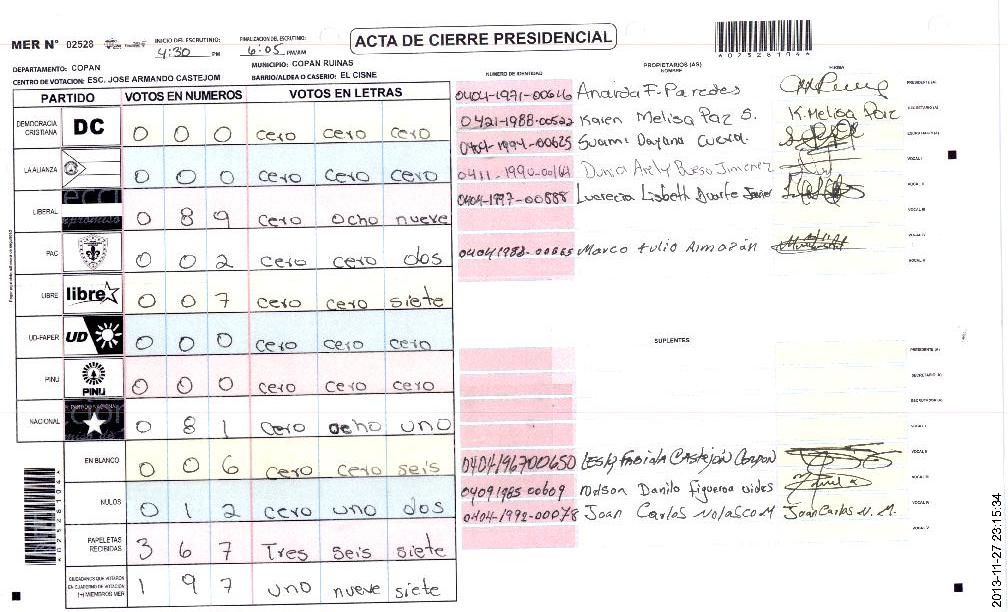 MER N° 02528
INICIO DEL ESCRUTINIO: 4:30 PM
FINALIZACION DEL ESCRUTINIO: 6:05 PM/AM
ACTA DE CIERRE PRESIDENCIAL
DEPARTAMENTO: COPAN
MUNICIPIO: COPAN RUINAS
CENTRO DE VOTACION: ESC. JOSE ARMANDO CASTEJOM
BARRIO/ALDEA O CASERIO: EL CISNE
PARTIDO VOTOS EN NUMEROS VOTOS EN LETRAS
DEMOCRACIA CRISTIANA DC 0 0 0 cero cero cero
LA ALIANZA 0 0 0 cero cero cero
LIBERAL 0 8 9 cero ocho nueve
PAC 0 0 2 cero cero dos
LIBRE libre 0 0 7 cero cero siete
UD-FAPER UD 0 0 0 cero cero cero
PINU PINU 0 0 0 cero cero cero
NACIONAL 0 8 1 cero ocho uno
EN BLANCO 0 0 6 cero cero seis
NULOS 0 1 2 cero uno dos
PAPELETAS RECIBIDAS 3 6 7 Tres seis siete
CIUDADANOS QUE VOTARON EN CUADERNO DE VOTACION (+) MIEMBROS MER 1 9 7 uno nueve siete
PROPIETARIOS (AS)
NUMERO DE IDENTIDAD NOMBRE FIRMA
0404-1971-00616 Amarda F. Paredes PRESIDENTE (A)
0421-1988-00522 Karen Melisa Paz S. K. Melisa Paz SECRETARIO (A)
0404-1994-00625 Suammi Dayana Cueva. ESCRUTADOR (A)
0411-1990-00161 Dunia Arely Bueso Jimenez VOCAL I
0404-1997-00888 Lucrecia Lisbeth Duarte VOCAL II
VOCAL III
0404 1988-00665 Marco tulio Almazán VOCAL IV
VOCAL V
SUPLENTES
PRESIDENTE (A)
SECRETARIO (A)
ESCRUTADOR (A)
VOCAL I
0404196700650 LESKY FABIOLA CASTEJÓN VOCAL II
0409 1985 00609 Nelson Danilo figueroa VOCAL III
0404-1992-00078 Joan Carlos Nolasco M Joan Carlos N. M. VOCAL IV
VOCAL V
2013-11-27 23:15:34